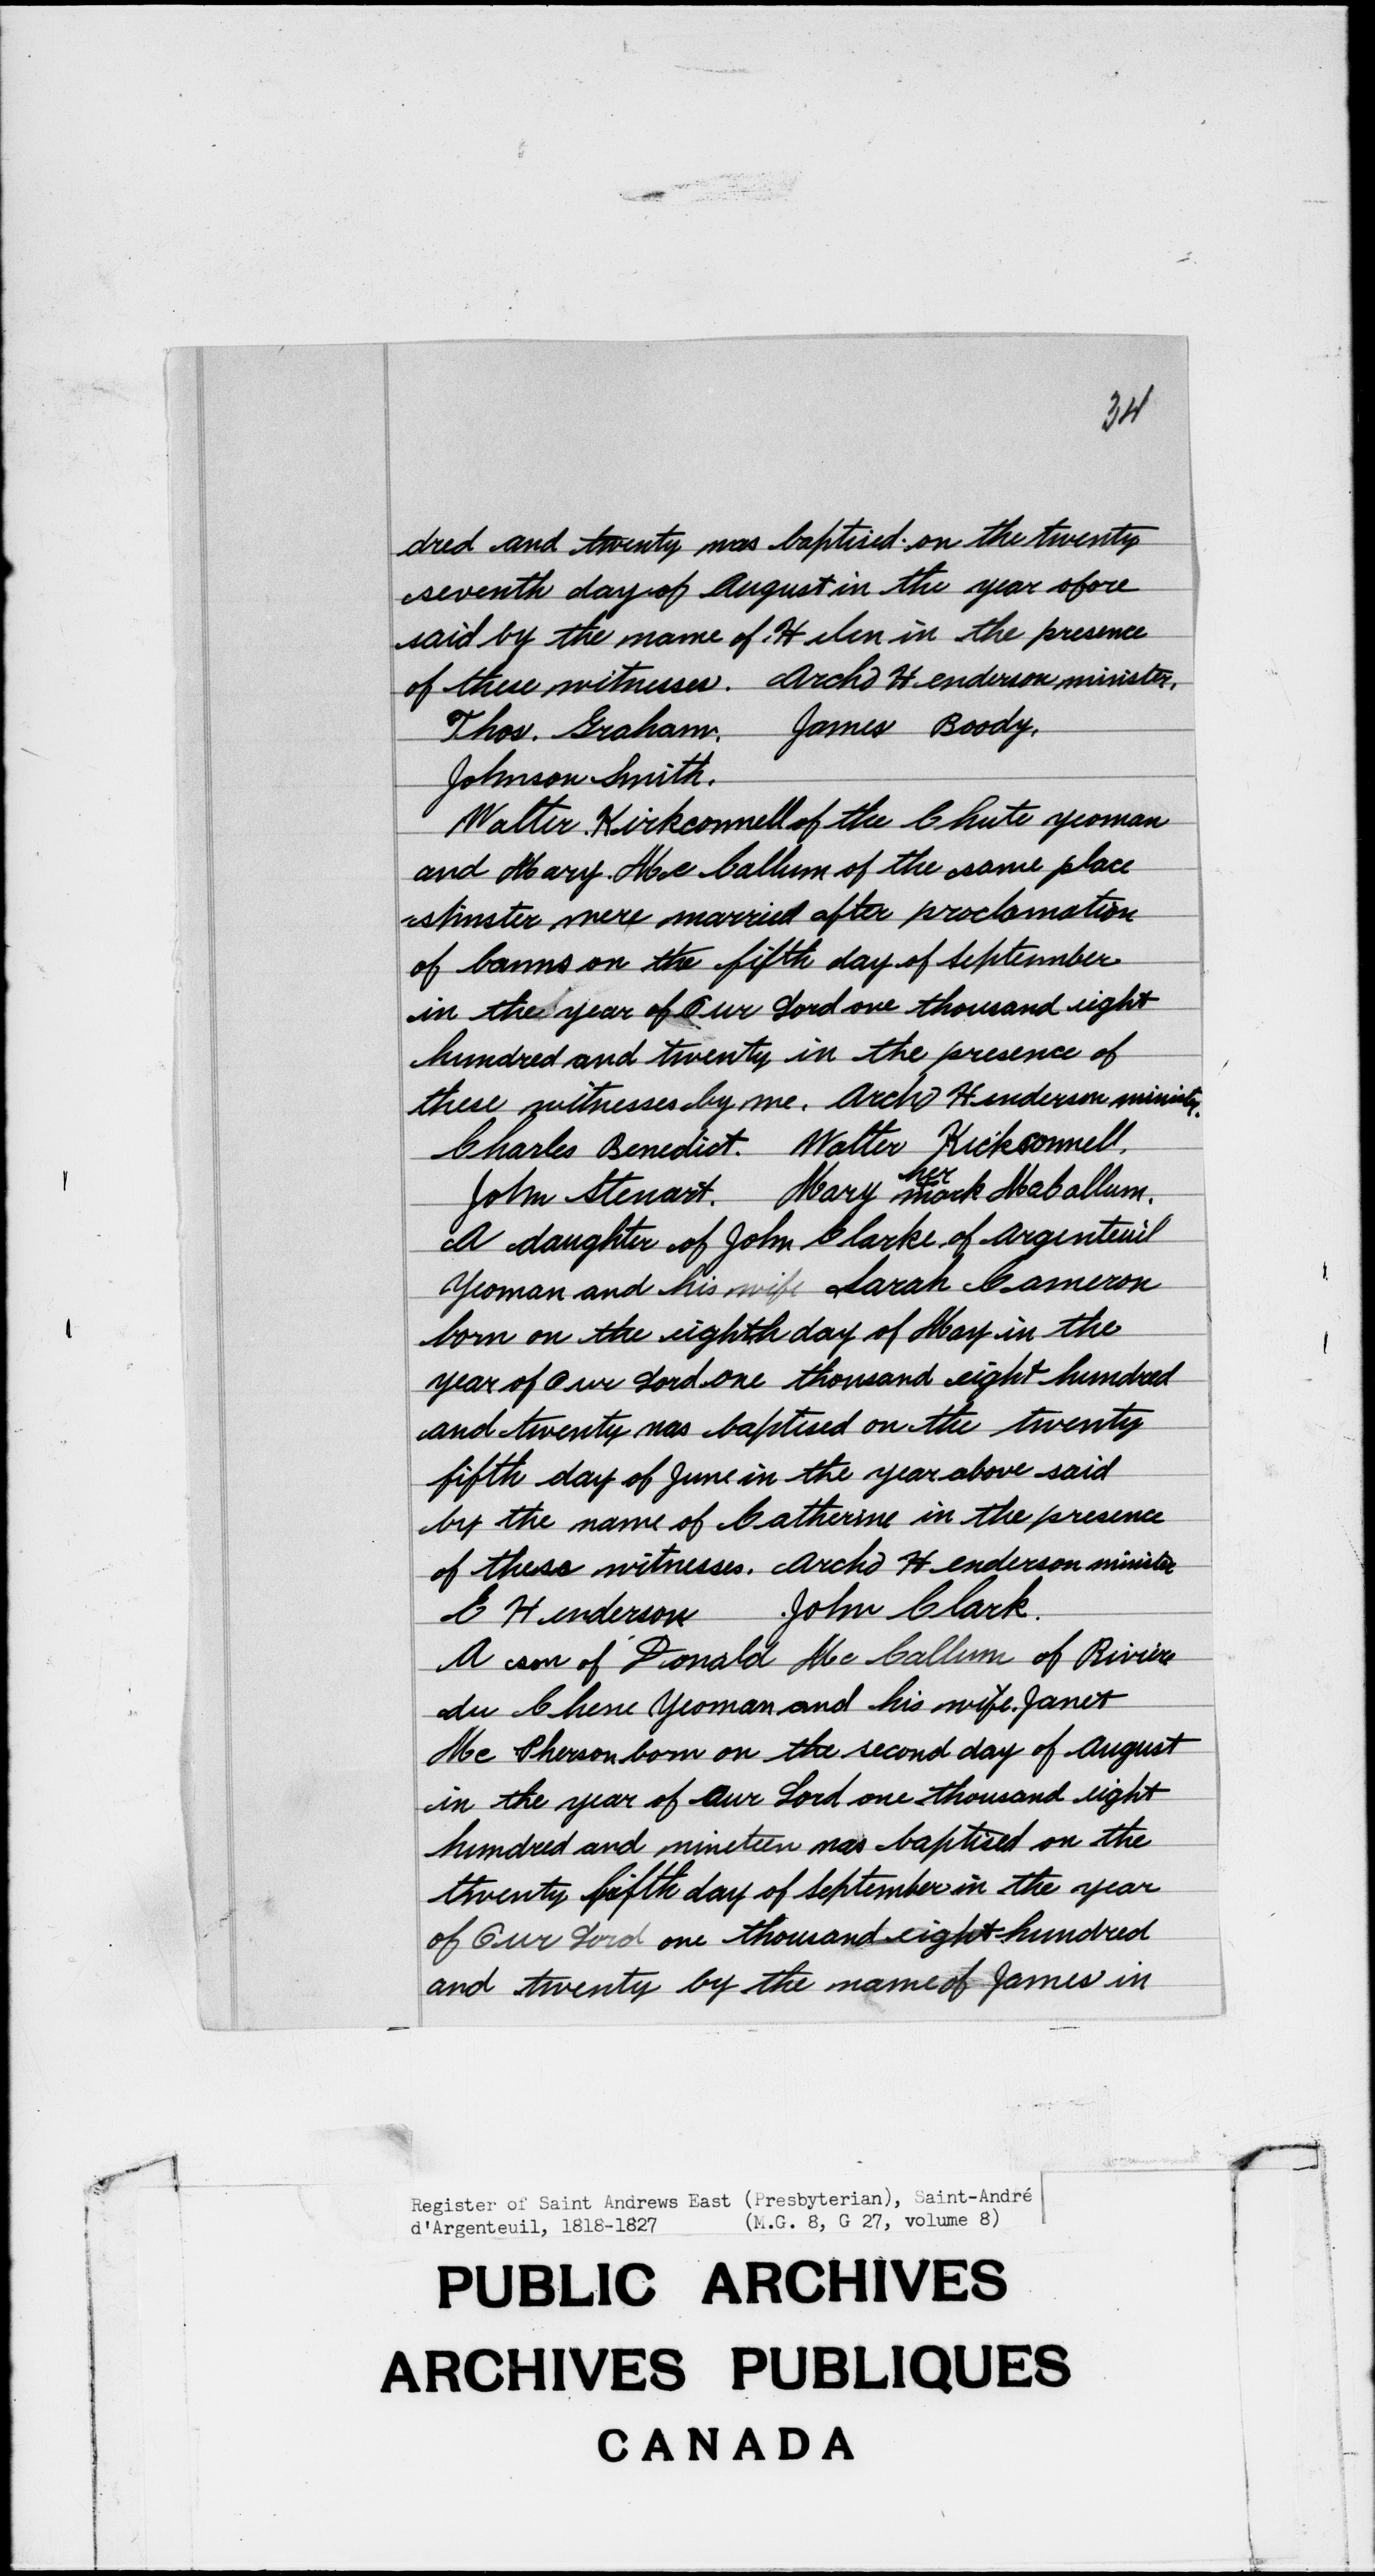 34
dred and twenty was baptised on the twenty
seventh day of August in the year afore
said by the name of Helen in the presence
of these witnesses. Archd Henderson minister.
Thos. Graham. James Boody.
Johnson Smith.
Walter Kirkconnell of the Chute yeoman
and Mary McCallum of the same place
spinster were married after proclamation
of banns on the fifth day of September
in the year of Our Lord one thousand eight
hundred and twenty in the presence of
these witnesses by me. Archd Henderson minister.
Charles Benedict. Walter Kickconnell.
her
John Stewart. Mary mark McCallum.
A daughter of John Clarke of Argenteuil
Yeoman and his wife Sarah Cameron
born on the eighth day of May in the
year of Our Lord one thousand eight hundred
and twenty was baptised on the twenty
fifth day of June in the year above said
by the name of Catherine in the presence
of these witnesses. Archd Henderson minister
E Henderson John Clark.
A son of Donald McCallum of Riviere
du Chene Yeoman and his wife Janet
McPherson born on the second day of August
in the year of Our Lord one thousand eight
hundred and nineteen was baptised on the
twenty fifth day of September in the year
of Our Lord one thousand eight hundred
and twenty by the name of James in
Register of Saint Andrews East (Presbyterian), Saint-André
d'Argenteuil, 1818-1827 (M.G. 8, G 27, volume 8)
PUBLIC ARCHIVES
ARCHIVES PUBLIQUES
CANADA